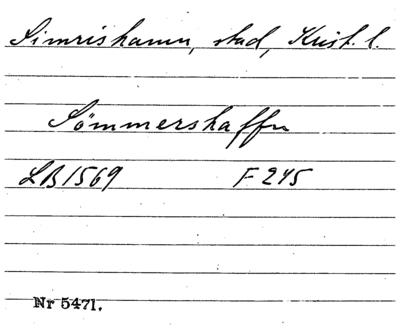 Simrishamn, stad, Krist. l.
Sömmershaffn
LB 1569 F 245
Nr 5471.